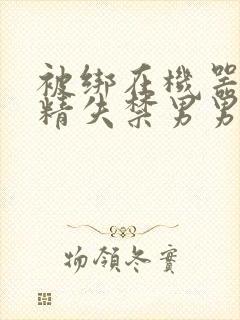 被绑在機器
精失禁男男
物領冬實